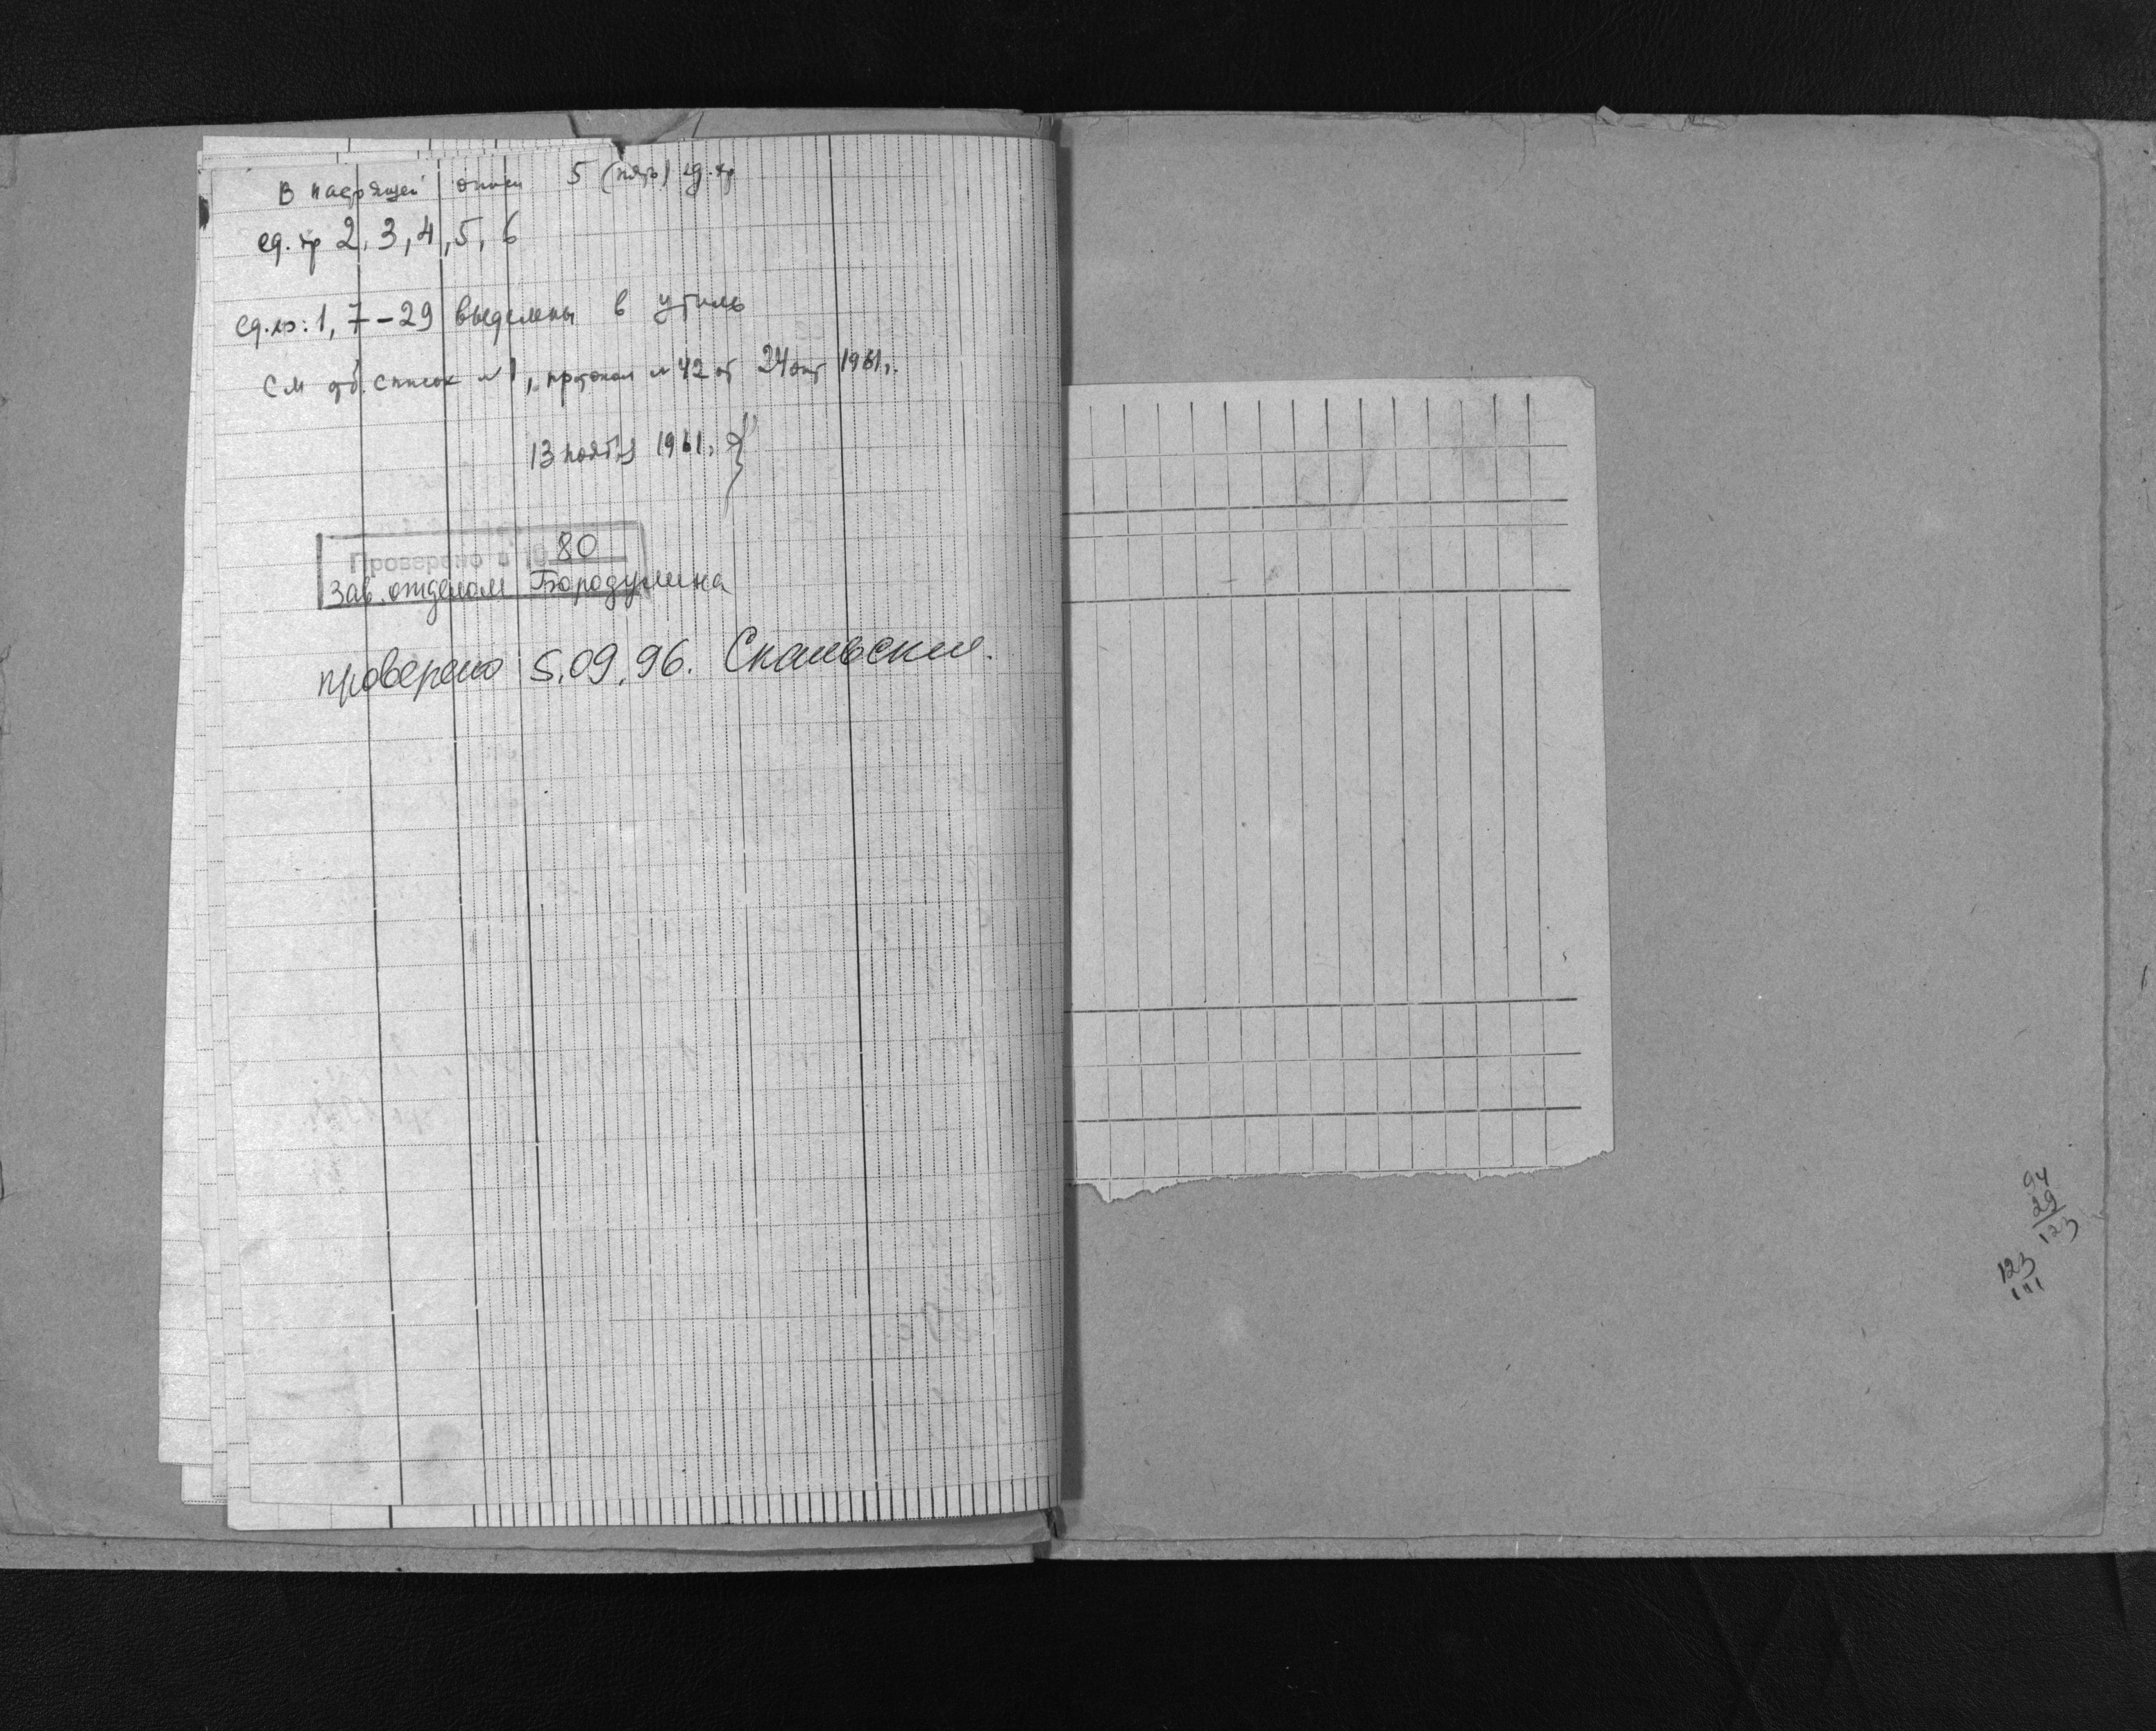 В настоящей описи 5 (пять) ед. хр
ед. хр 2, 3, 4, 5, 6
Ед. хр: 1, 7 – 29 выделены в утиль
См отб. список № 1, протокол № 42 от 24 окт 1961 г.
13 ноября 1961 г.
Проверено в 19 80
Зав. отделом Бородулина
проверено 5.09.96.
94
29
123
123